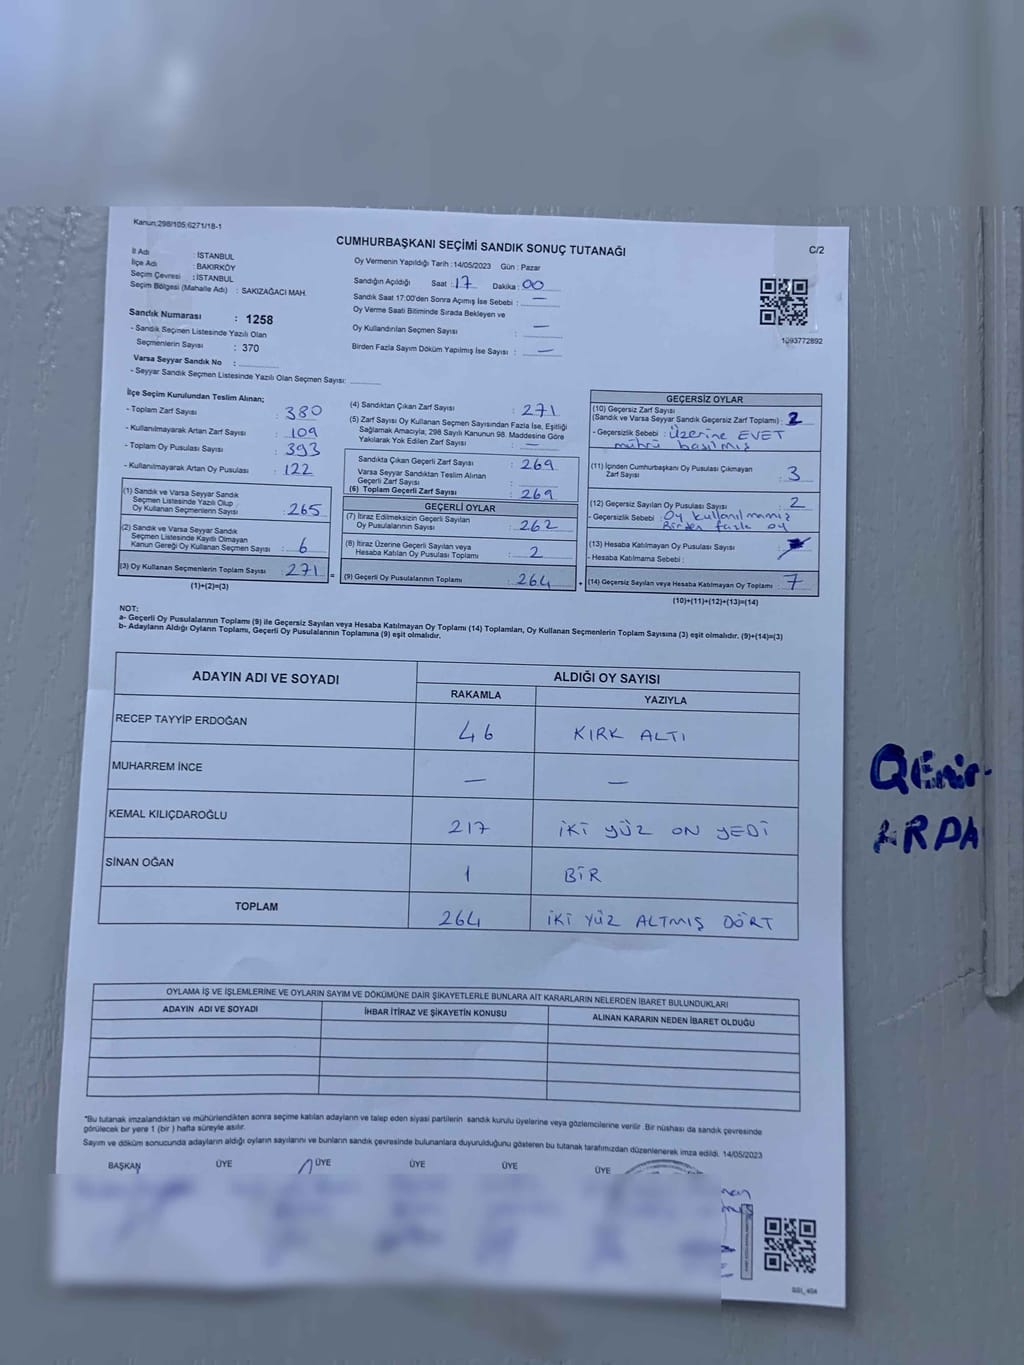 Kanun:298/105;6271/18-1
CUMHURBAŞKANI SEÇİMİ SANDIK SONUÇ TUTANAĞI
C/2
İl Adı : İSTANBUL
İlçe Adı : BAKIRKÖY
Seçim Çevresi : İSTANBUL
Seçim Bölgesi (Mahalle Adı) : SAKIZAĞACI MAH.
Sandık Numarası : 1258
- Sandık Seçmen Listesinde Yazılı Olan
Seçmenlerin Sayısı : 370
Varsa Seyyar Sandık No :
- Seyyar Sandık Seçmen Listesinde Yazılı Olan Seçmen Sayısı:
Oy Vermenin Yapıldığı Tarih :14/05/2023 Gün : Pazar
Sandığın Açıldığı Saat : 17 Dakika : 00
Sandık Saat 17:00'den Sonra Açımış İse Sebebi : —
Oy Verme Saati Bitiminde Sırada Bekleyen ve
Oy Kullandırılan Seçmen Sayısı : —
Birden Fazla Sayım Döküm Yapılmış İse Sayısı : —
1093772892
İlçe Seçim Kurulundan Teslim Alınan;
- Toplam Zarf Sayısı : 380
- Kullanılmayarak Artan Zarf Sayısı : 109
- Toplam Oy Pusulası Sayısı : 393
- Kullanılmayarak Artan Oy Pusulası : 122
(1) Sandık ve Varsa Seyyar Sandık
Seçmen Listesinde Yazılı Olup
Oy Kullanan Seçmenlerin Sayısı : 265
(2) Sandık ve Varsa Seyyar Sandık
Seçmen Listesinde Kayıtlı Olmayan
Kanun Gereği Oy Kullanan Seçmen Sayısı : 6
(3) Oy Kullanan Seçmenlerin Toplam Sayısı : 271
(1)+(2)=(3)
(4) Sandıktan Çıkan Zarf Sayısı : 271
(5) Zarf Sayısı Oy Kullanan Seçmen Sayısından Fazla İse, Eşitliği
Sağlamak Amacıyla, 298 Sayılı Kanunun 98. Maddesine Göre
Yakılarak Yok Edilen Zarf Sayısı : —
Sandıkta Çıkan Geçerli Zarf Sayısı : 269
Varsa Seyyar Sandıktan Teslim Alınan
Geçerli Zarf Sayısı :
(6) Toplam Geçerli Zarf Sayısı : 269
GEÇERLİ OYLAR
(7) İtiraz Edilmeksizin Geçerli Sayılan
Oy Pusulalarının Sayısı : 262
(8) İtiraz Üzerine Geçerli Sayılan veya
Hesaba Katılan Oy Pusulası Toplamı : 2
=
(9) Geçerli Oy Pusulalarının Toplamı : 264
+
GEÇERSİZ OYLAR
(10) Geçersiz Zarf Sayısı
(Sandık ve Varsa Seyyar Sandık Geçersiz Zarf Toplamı) : 2
- Geçersizlik Sebebi : Üzerine EVET
mührü basılmış
(11) İçinden Cumhurbaşkanı Oy Pusulası Çıkmayan
Zarf Sayısı : 3
(12) Geçersiz Sayılan Oy Pusulası Sayısı : 2
- Geçersizlik Sebebi : Oy kullanılmamış
Birden fazla oy
(13) Hesaba Katılmayan Oy Pusulası Sayısı :
- Hesaba Katılmama Sebebi :
(14) Geçersiz Sayılan veya Hesaba Katılmayan Oy Toplamı : 7
(10)+(11)+(12)+(13)=(14)
NOT:
a- Geçerli Oy Pusulalarının Toplamı (9) ile Geçersiz Sayılan veya Hesaba Katılmayan Oy Toplamı (14) Toplamları, Oy Kullanan Seçmenlerin Toplam Sayısına (3) eşit olmalıdır. (9)+(14)=(3)
b- Adayların Aldığı Oyların Toplamı, Geçerli Oy Pusulalarının Toplamına (9) eşit olmalıdır.
ADAYIN ADI VE SOYADI
ALDIĞI OY SAYISI
RAKAMLA YAZIYLA
RECEP TAYYİP ERDOĞAN 46 KIRK ALTI
MUHARREM İNCE — —
KEMAL KILIÇDAROĞLU 217 İKİ YÜZ ON YEDİ
SİNAN OĞAN 1 BİR
TOPLAM 264 İKİ YÜZ ALTMIŞ DÖRT
OYLAMA İŞ VE İŞLEMLERİNE VE OYLARIN SAYIM VE DÖKÜMÜNE DAİR ŞİKAYETLERLE BUNLARA AİT KARARLARIN NELERDEN İBARET BULUNDUKLARI
ADAYIN ADI VE SOYADI İHBAR İTİRAZ VE ŞİKAYETİN KONUSU ALINAN KARARIN NEDEN İBARET OLDUĞU
*Bu tutanak imzalandıktan ve mühürlendikten sonra seçime katılan adayların ve talep eden siyasi partilerin sandık kurulu üyelerine veya gözlemcilerine verilir. Bir nüshası da sandık çevresinde
görülecek bir yere 1 (bir ) hafta süreyle asılır.
Sayım ve döküm sonucunda adayların aldığı oyların sayılarını ve bunların sandık çevresinde bulunanlara duyurulduğunu gösteren bu tutanak tarafımızdan düzenlenerek imza edildi. 14/05/2023
BAŞKAN ÜYE ÜYE ÜYE ÜYE ÜYE
ARDA